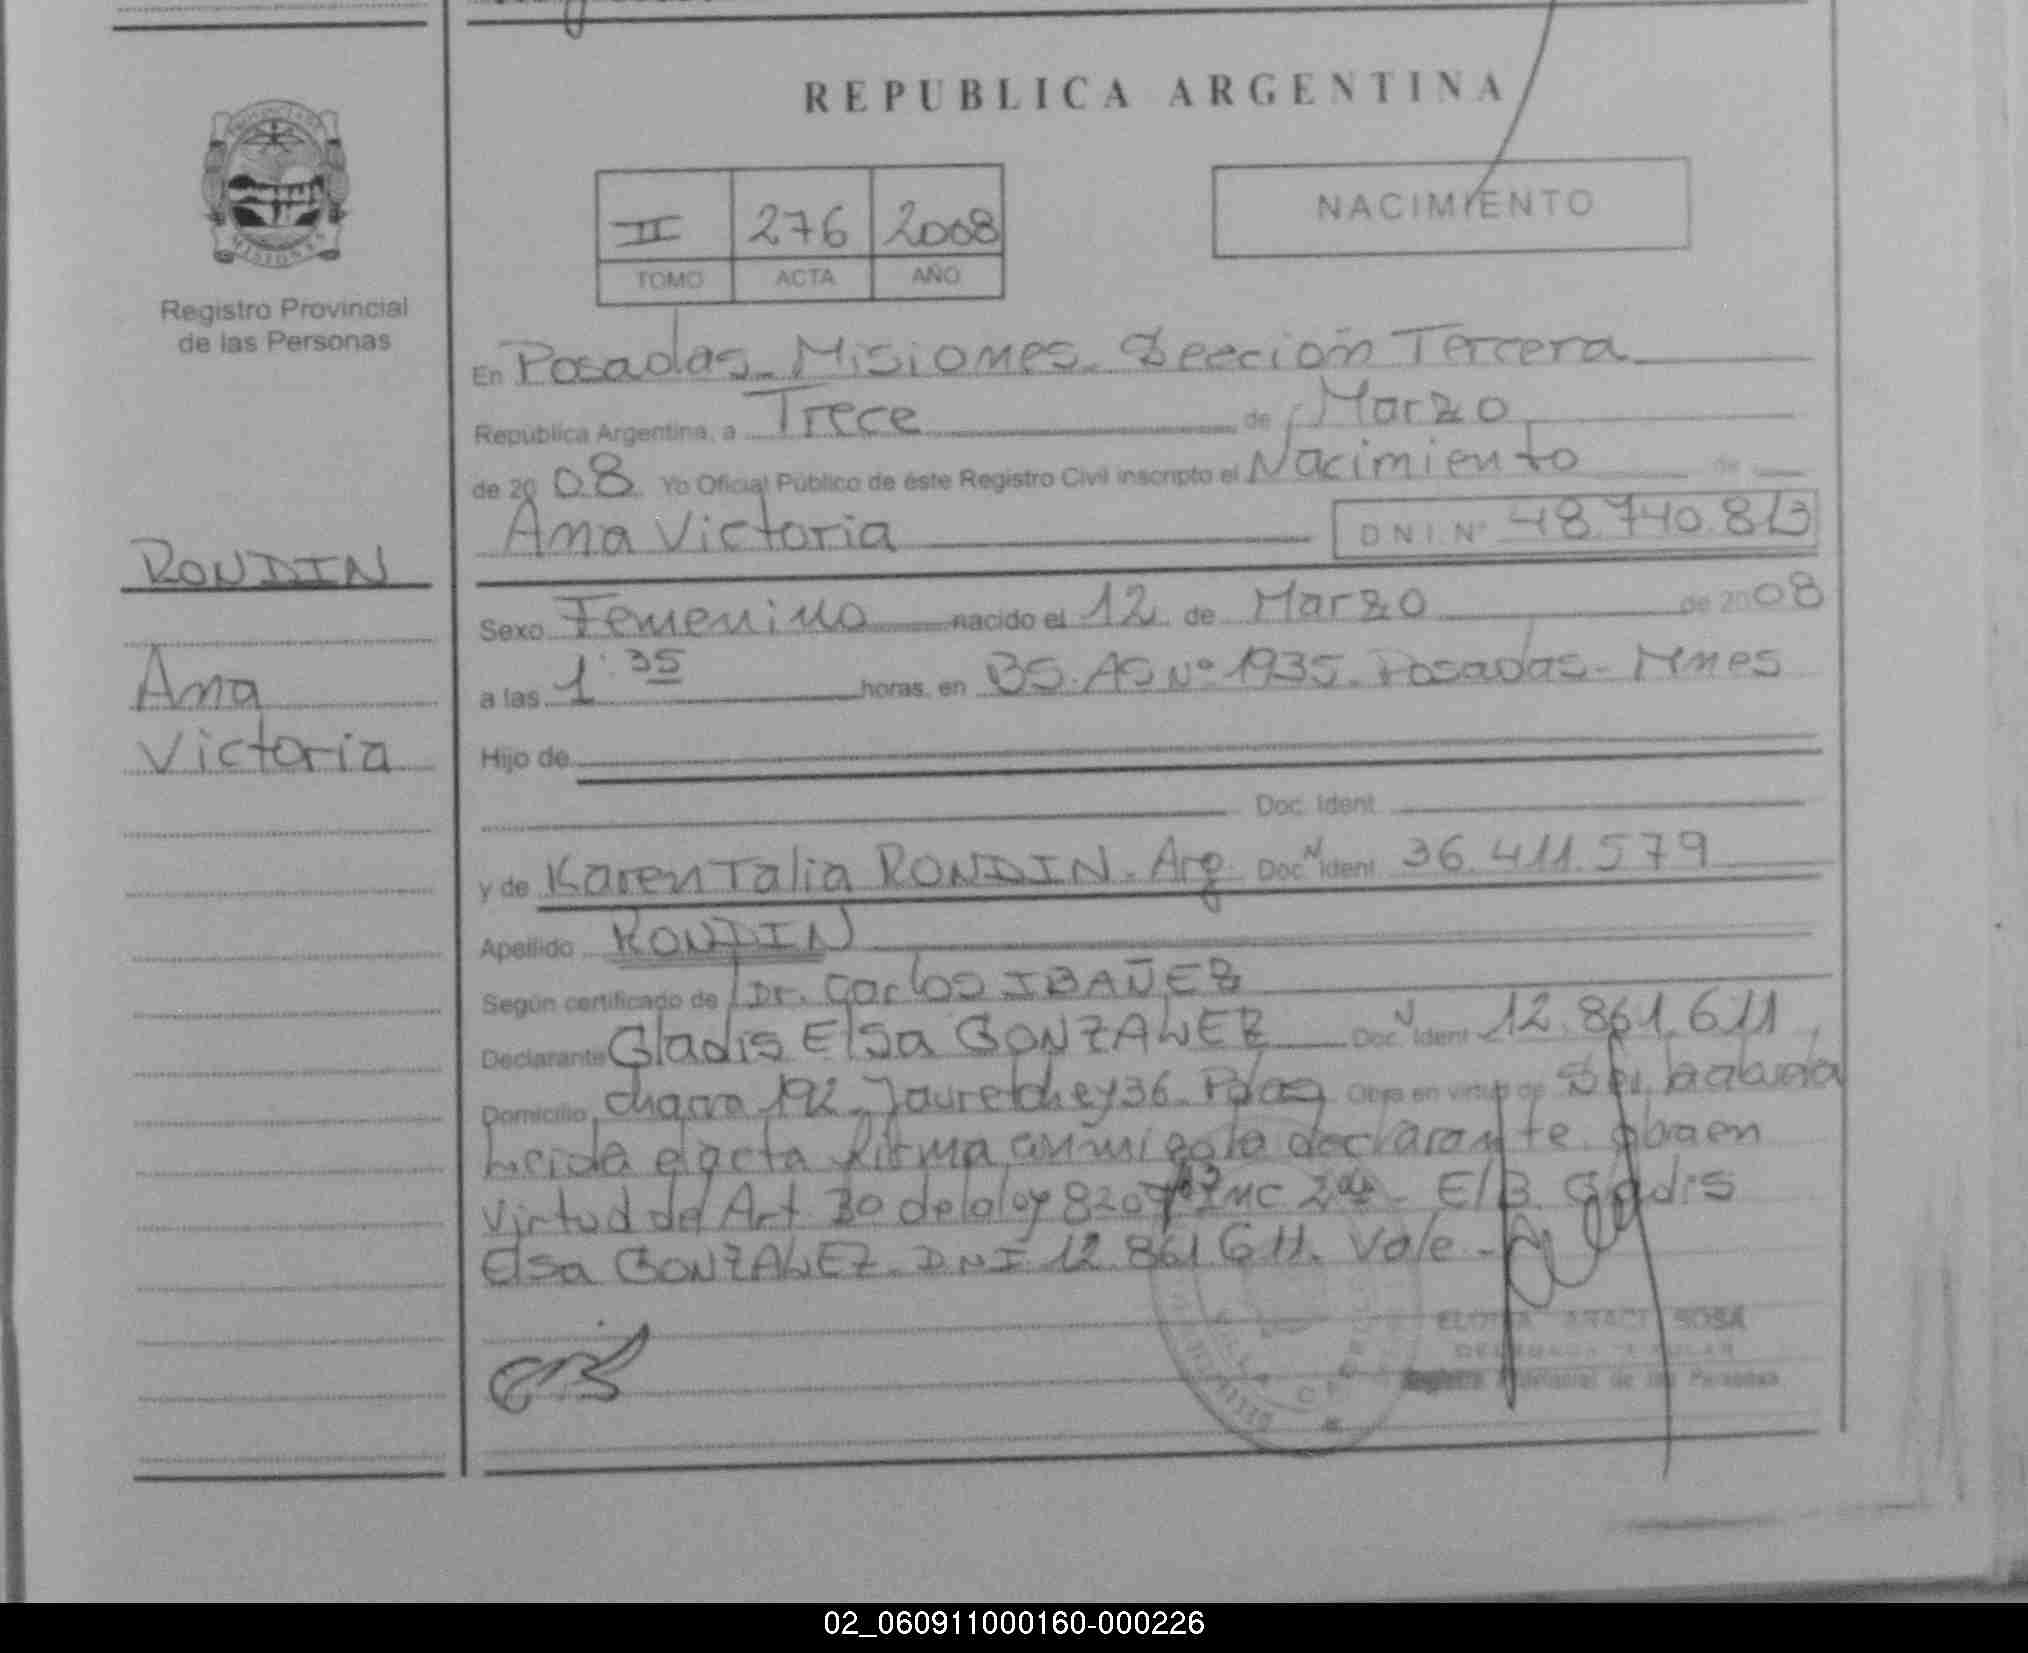 REPUBLICA ARGENTINA
II 276 2008
TOMO ACTA AÑO
NACIMIENTO
Registro Provincial
de las Personas
RONDIN
Ana
Victoria
En Posadas - Misiones - Sección Tercera
República Argentina, a Trece de Marzo
de 2008 Yo Oficial Público de éste Registro Civil inscripto el Nacimiento de
Ana Victoria D N I. Nº 48.740.813
Sexo Femenino nacido el 12 de Marzo de 2008
a las 1:35 horas, en BS. AS Nº 1935. Posadas - Mnes
Hijo de
Doc. Ident.
y de Karen Talia RONDIN. Arg. Doc. Ident. 36.411.579
Apellido RONDIN
Según certificado de Dr. Carlos IBAÑEZ
Declarante Gladis Elsa GONZALEZ Doc. Ident. 12.861.611
Domicilio chacra 192 - Jauretche y 36 - Pdas Obra en virtud de Ser abuela
Leida el acta firma conmigo la declarante obra en
virtud del Art. 30 de la ley E/B. Gladis
Elsa GONZALEZ. DNI 12.861.611. Vale -
SOSA
Registro Provincial de las Personas
02_060911000160-000226